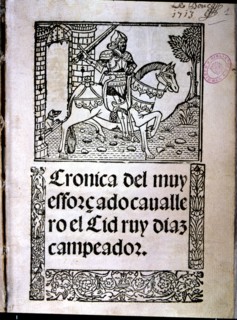 1713
Cronica del muy
efforçado cavalle
ro el Cid ruy diaz
campeador.